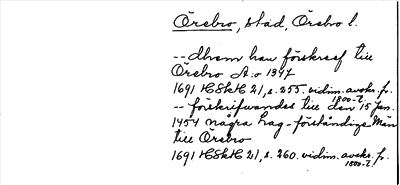 Örebro, stad, Örebro l.
-- dhem han förskref till
Örebro A:o 1347
1691 HSkH 21, s. 255. vidim. avskr. fr.
1800-t.
-- förskrifwandes till den 15 Jan.
1454 några Lag-förståndige Män
till Örebro
1691 HSkH 21, s. 260. vidim. avskr. fr.
1800-t.